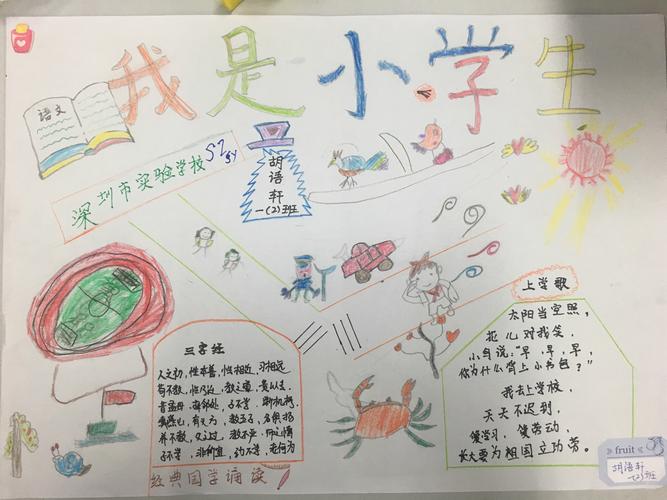 我是小学生
语文
深圳市实验学校
SZ
SY
胡语轩
一(2)班
上学歌
太阳当空照,
花儿对我笑,
小鸟说:"早,早,早,
你为什么背上小书包?"
我去上学校,
天天不迟到,
爱学习,爱劳动,
长大要为祖国立功劳。
三字经
人之初,性本善,性相近,习相远
苟不教,性乃迁,教之道,贵以专,
昔孟母,择邻处,子不学,断机杼,
窦燕山,有义方,教五子,名俱扬
养不教,父之过,教不严,师之惰
子不学,非所宜,幼不学,老何为
经典国学诵读
» fruit «
胡语轩
一(2)班